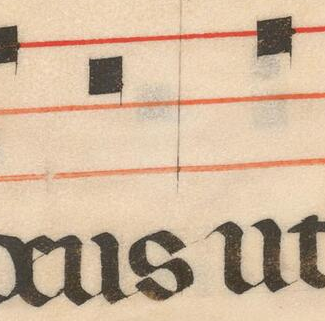 xus ut